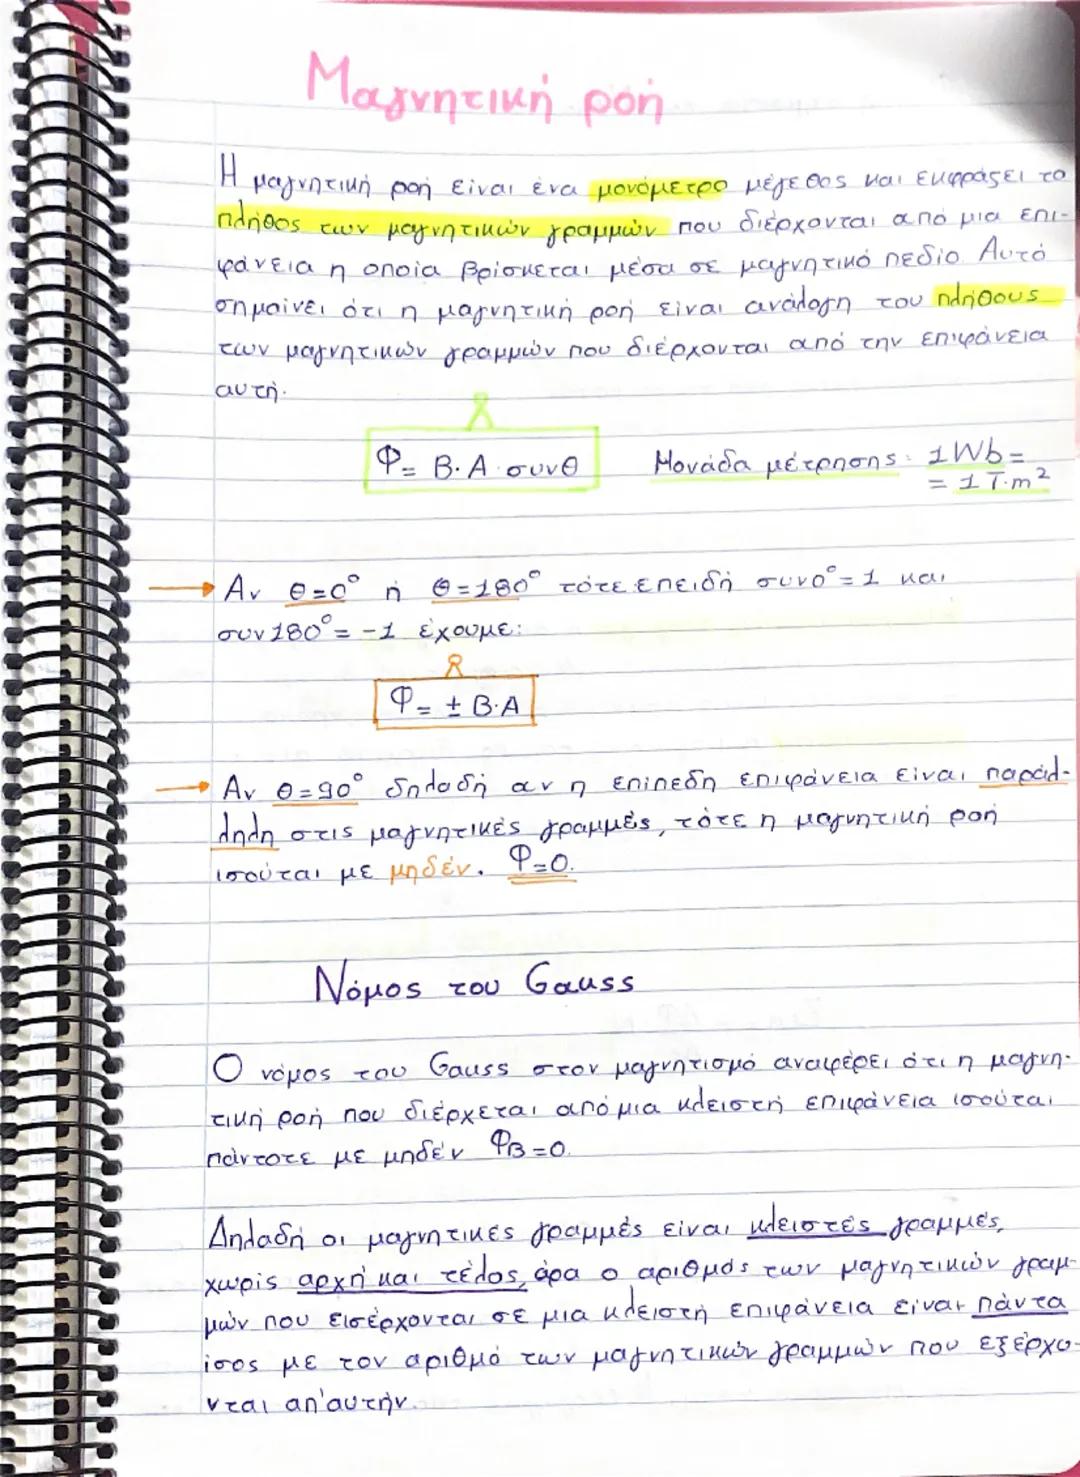 Μαγνητική ροή
Η μαγνητική ροή είναι ένα μονόμετρο μέγεθος και εκφράζει το
πλήθος των μαγνητικών γραμμών που διέρχονται από μια επι-
φάνεια η οποία βρίσκεται μέσα σε μαγνητικό πεδίο. Αυτό
σημαίνει ότι η μαγνητική ροή είναι ανάλογη του πλήθους
των μαγνητικών γραμμών που διέρχονται από την επιφάνεια
αυτή.
Φ= Β·Α·συνθ Μονάδα μέτρησης: 1Wb=
= 1 T·m²
Αν θ=0° ή θ=180° τότε επειδή συν0°=1 και
συν180°= -1 έχουμε:
Φ= ± Β·Α
Αν θ=90° δηλαδή αν η επίπεδη επιφάνεια είναι παράλ-
ληλη στις μαγνητικές γραμμές, τότε η μαγνητική ροή
ισούται με μηδέν. Φ=0.
Νόμος του Gauss
Ο νόμος του Gauss στον μαγνητισμό αναφέρει ότι η μαγνη-
τική ροή που διέρχεται από μια κλειστή επιφάνεια ισούται
πάντοτε με μηδέν ΦΒ=0.
Δηλαδή οι μαγνητικές γραμμές είναι κλειστές γραμμές,
χωρίς αρχή και τέλος, άρα ο αριθμός των μαγνητικών γραμ-
μών που εισέρχονται σε μια κλειστή επιφάνεια είναι πάντα
ίσος με τον αριθμό των μαγνητικών γραμμών που εξέρχο-
νται απ'αυτήν.